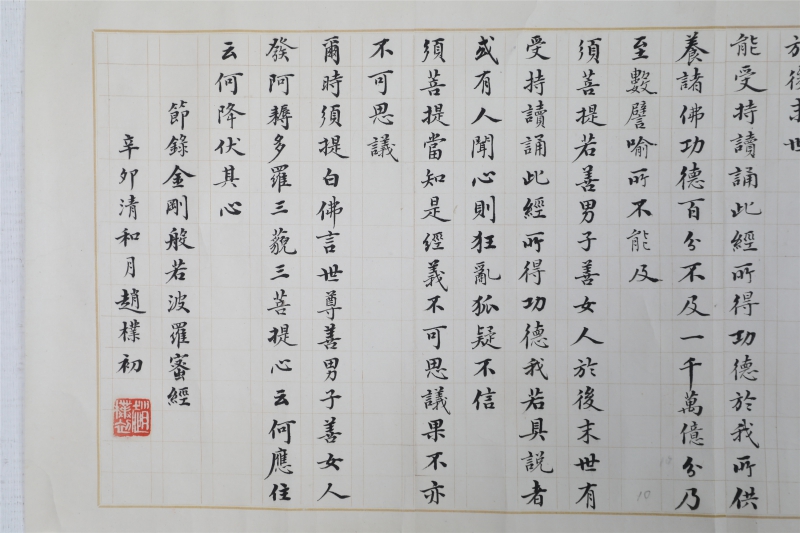 於後末世
能受持讀誦此經所得功德於我所供
養諸佛功德百分不及一千萬億分乃
至數譬喻所不能及
須菩提若善男子善女人於後末世有
受持讀誦此經所得功德我若具說者
或有人聞心則狂亂狐疑不信
須菩提當知是經義不可思議果不亦
不可思議
爾時須提白佛言世尊善男子善女人
發阿耨多羅三藐三菩提心云何應住
云何降伏其心
節錄金剛般若波羅蜜經
辛卯清和月趙樸初
10
10